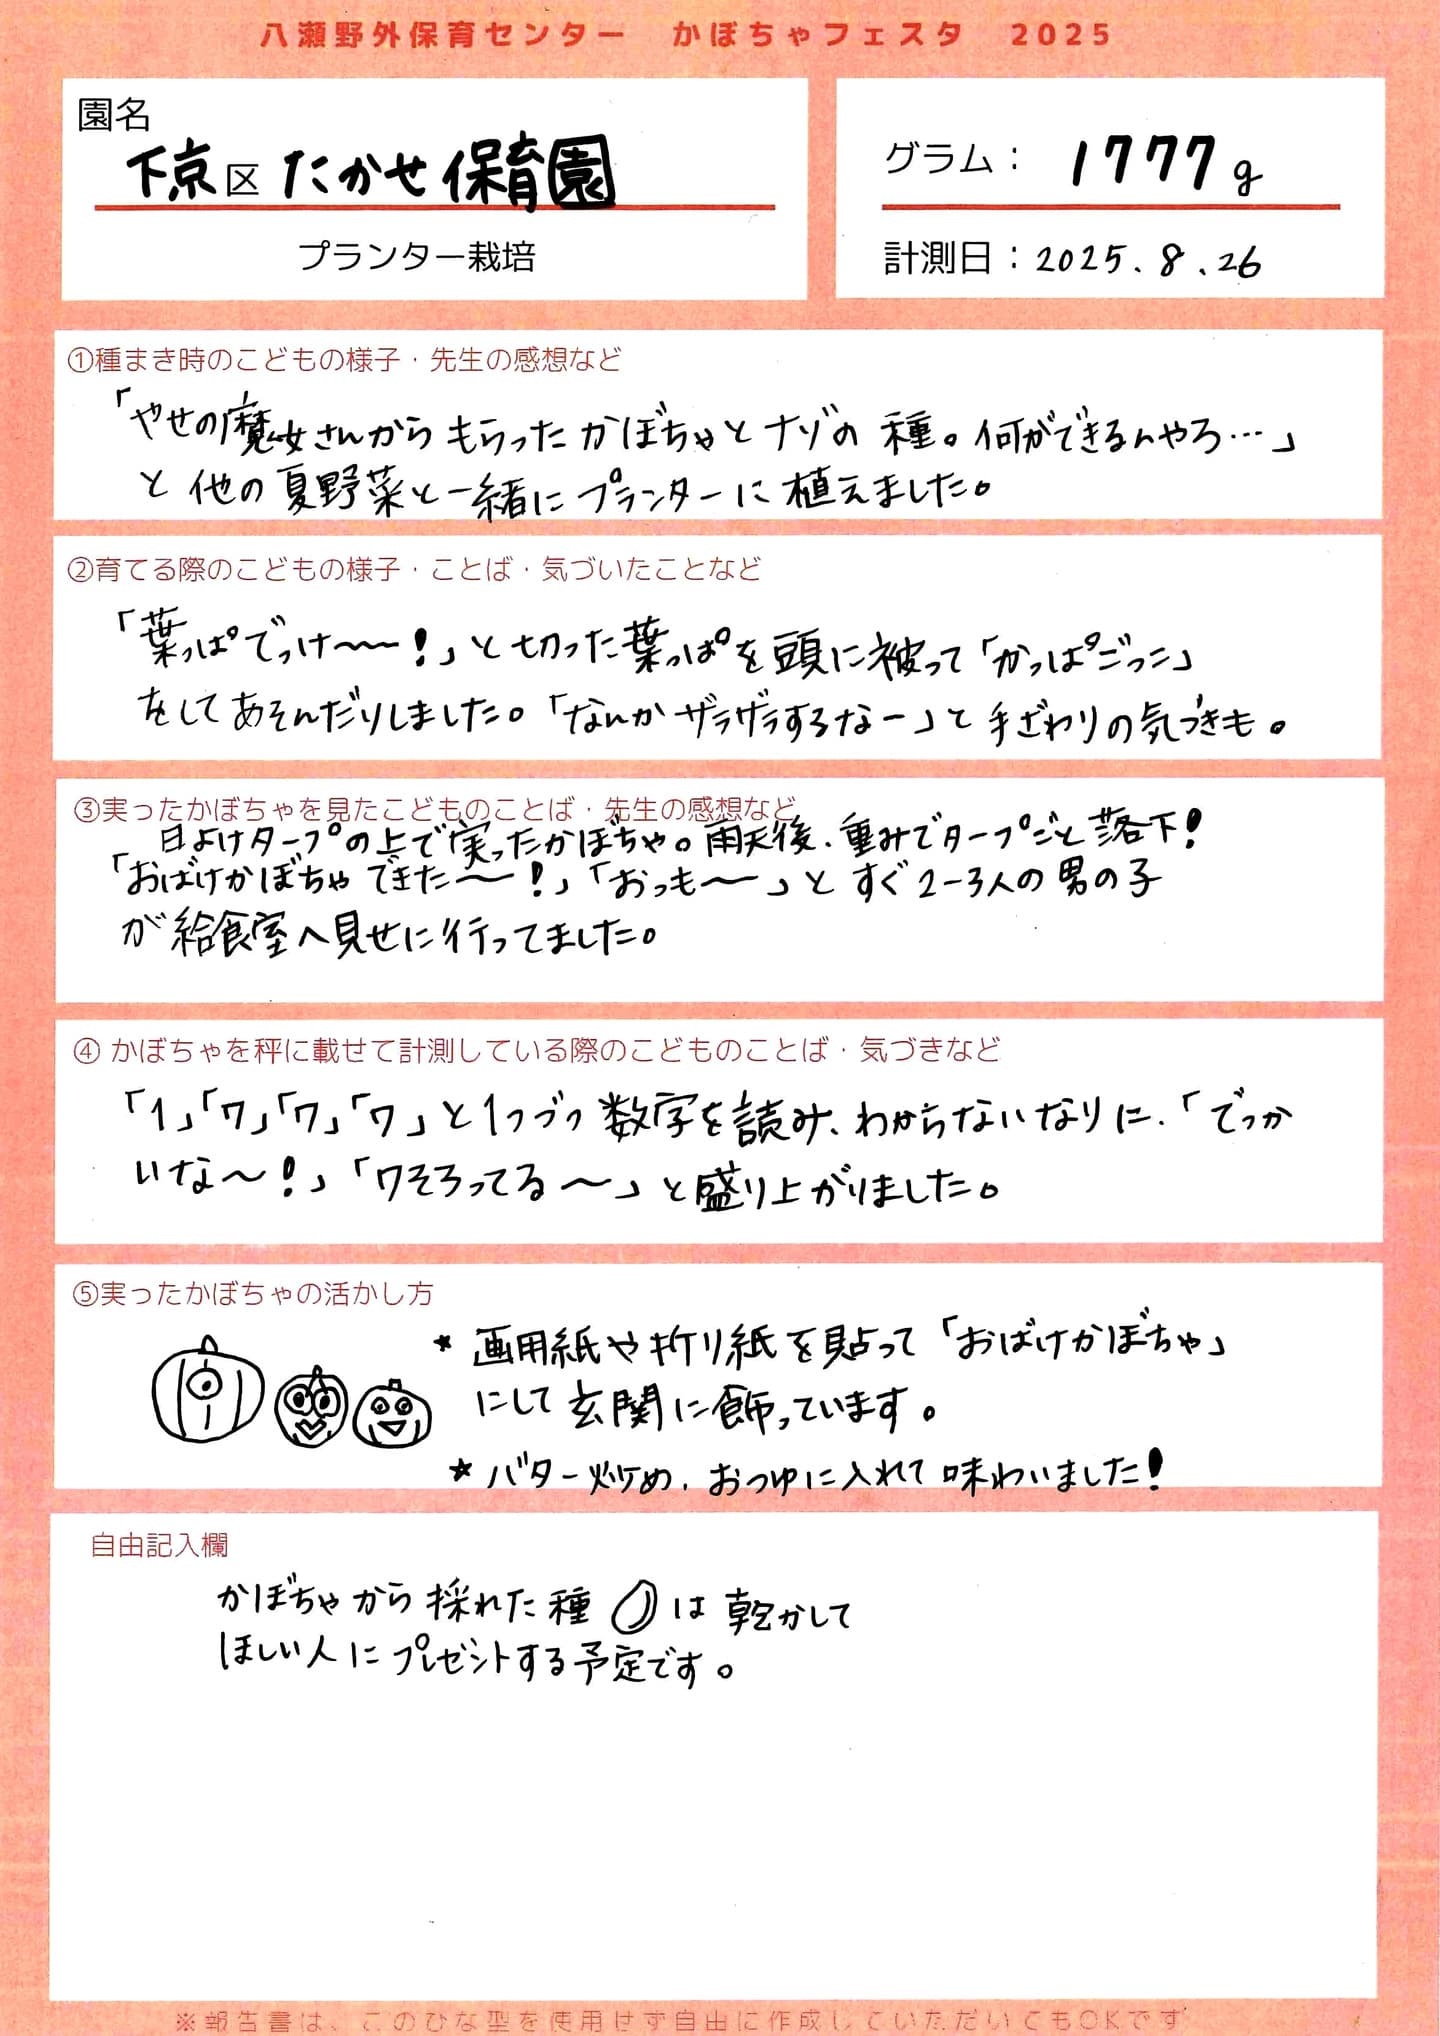 八瀬野外保育センター　かぼちゃフェスタ　2025
園名
下京区 たかせ保育園
プランター栽培
グラム： 1777g
計測日：2025.8.26
①種まき時のこどもの様子・先生の感想など
「やせの魔女さんからもらったかぼちゃとナゾの種。何ができるんやろ…」
と他の夏野菜と一緒にプランターに植えました。
②育てる際のこどもの様子・ことば・気づいたことなど
「葉っぱでっけ〜〜!」と切った葉っぱを頭に被って「かっぱごっこ」
をしてあそんだりしました。「なんかザラザラするなー」と手ざわりの気づきも。
③実ったかぼちゃを見たこどものことば・先生の感想など
日よけタープの上で実ったかぼちゃ。雨天後、重みでタープごと落下!
「おばけかぼちゃできた〜〜!」「おっも〜〜」とすぐ2-3人の男の子
が給食室へ見せに行ってました。
④かぼちゃを秤に載せて計測している際のこどものことば・気づきなど
「1」「7」「7」「7」と1つづつ数字を読み、わからないなりに、「でっか
いな〜!」「7そろってる〜」と盛り上がりました。
⑤実ったかぼちゃの活かし方
* 画用紙や折り紙を貼って「おばけかぼちゃ」
にして玄関に飾っています。
★ バター炒め、おつゆに入れて味わいました!
自由記入欄
かぼちゃから採れた種は乾かして
ほしい人にプレゼントする予定です。
※報告書は、このひな型を使用せず自由に作成していただいてもOKです